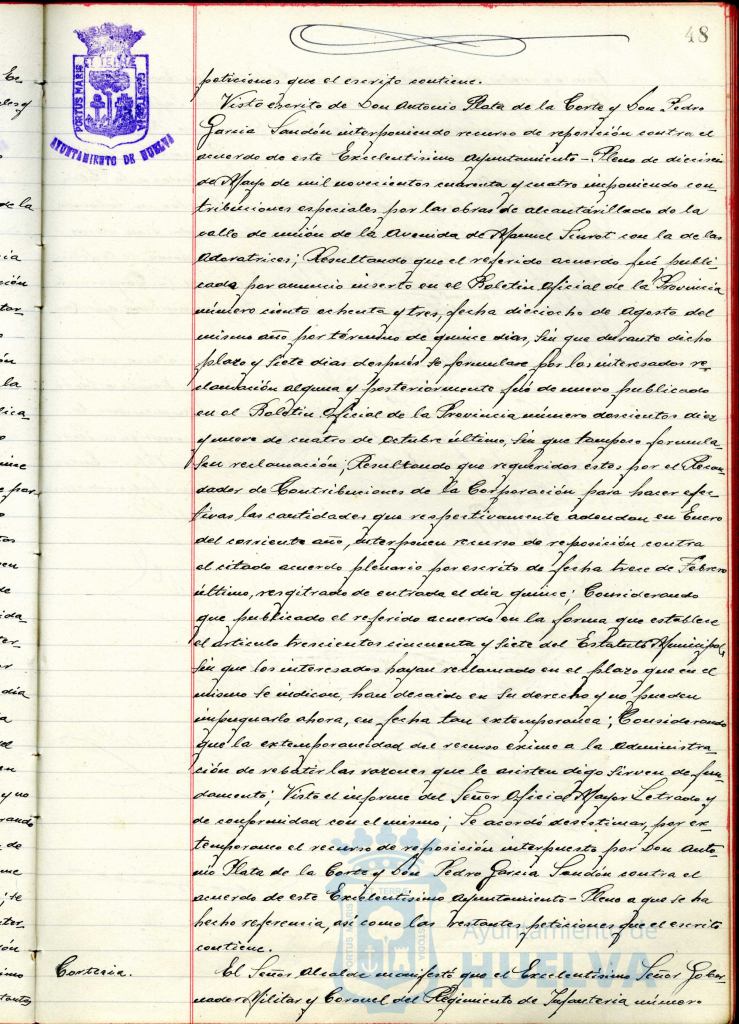 48
PORTUS MARIS ET TERRAE CUSTODIA
AYUNTAMIENTO DE HUELVA
peticiones que el escrito contiene.
Visto escrito de Don Antonio Plata de la Corte y Don Pedro
García Sandón interponiendo recurso de reposición contra el
acuerdo de este Excelentísimo Ayuntamiento-Pleno de dieciseis
de Mayo de mil novecientos cuarenta y cuatro imponiendo con-
tribuciones especiales por las obras de alcantarillado de la
calle de unión de la Avenida de Manuel Siurot con la de las
Adoratrices; Resultando que el referido acuerdo fué publi-
cado por anuncio inserto en el Boletín Oficial de la Provincia
número ciento ochenta y tres, fecha dieciocho de Agosto del
mismo año por término de quince días, sin que durante dicho
plazo y siete días después se formulase por los interesados re-
clamación alguna y posteriormente fué de nuevo publicado
en el Boletín Oficial de la Provincia número doscientos diez
y nueve de cuatro de Octubre último, sin que tampoco formula-
sen reclamación; Resultando que requeridos estos por el Recau-
dador de Contribuciones de la Corporación para hacer efec-
tivas las cantidades que respectivamente adeudan en Enero
del corriente año, interponen recurso de reposición contra
el citado acuerdo plenario por escrito de fecha trece de Febrero
último, resgitrado de entrada el día quince; Considerando
que publicado el referido acuerdo en la forma que establece
el artículo trescientos cincuenta y siete del Estatuto Municipal,
sin que los interesados hayan reclamado en el plazo que en el
mismo se indican, han decaido en su derecho y no pueden
impugnarlo ahora, en fecha tan extemporanea; Considerando
que la extemporaneidad del recurso exime a la Administra-
ción de rebatir las razones que le asisten digo sirven de fun-
damento; Visto el informe del Señor Oficial Mayor Letrado y
de conformidad con el mismo; Se acordó desestimar, por ex-
temporaneo el recurso de reposición interpuesto por Don Anto-
nio Plata de la Corte y Don Pedro García Sandón contra el
acuerdo de este Excelentísimo Ayuntamiento-Pleno a que se ha
hecho referencia, así como las restantes peticiones que el escrito
contiene.
Cortesia.
El Señor Alcalde manifestó que el Excelentísimo Señor Gober-
nador Militar y Coronel del Regimiento de Infantería número
Ayuntamiento de
HUELVA